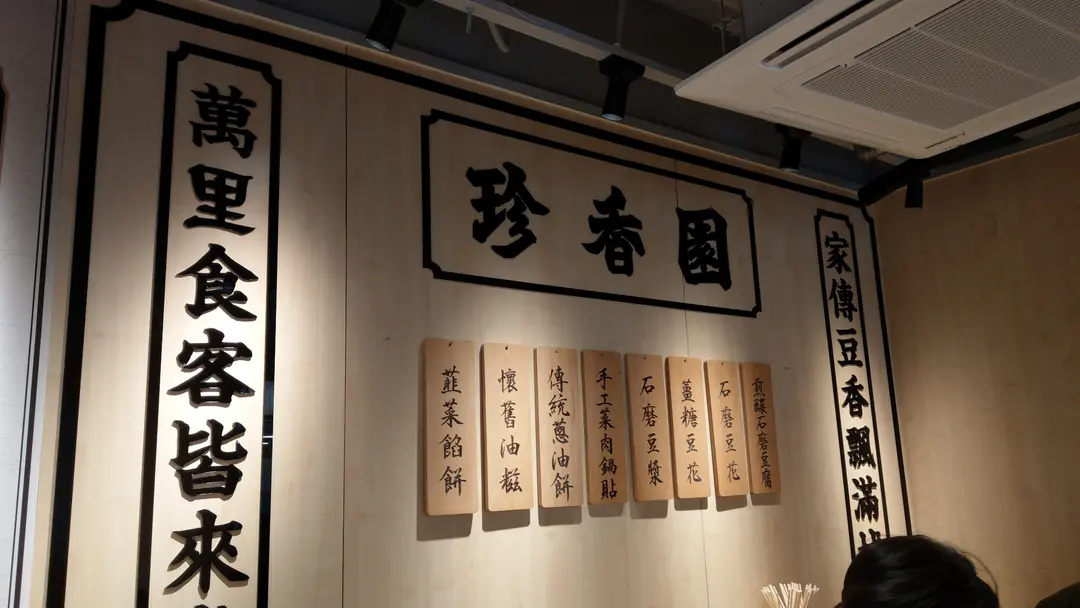 珍香園
家傳豆香飄滿
煎釀石磨豆腐
石磨豆花
薑糖豆花
石磨豆漿
手工菜肉鍋貼
傳統蔥油餅
懷舊油糍
韮菜餡餅
萬里食客皆來